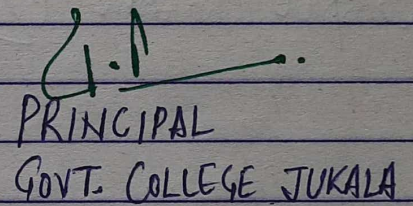 PRINCIPAL
GOVT. COLLEGE JUKALA